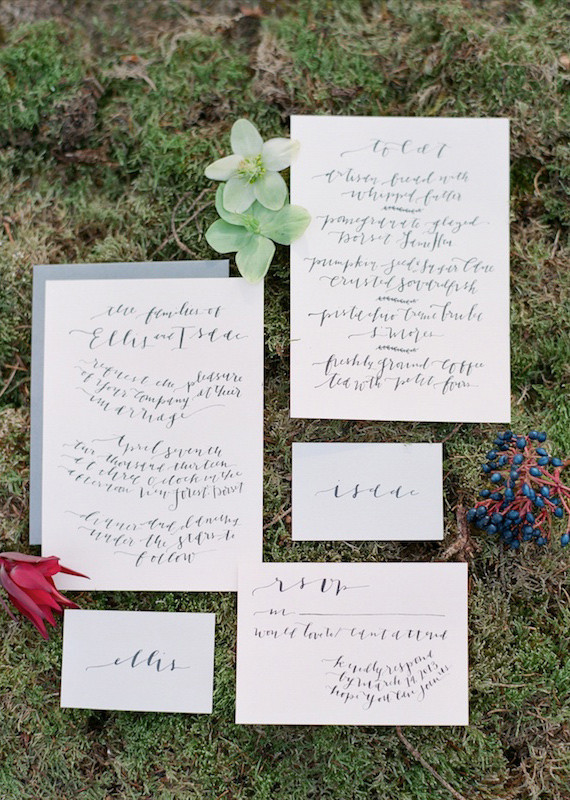 the families of
Ellis and Isaac
request the pleasure
of your company at their
marriage
April seventh
two thousand thirteen
at three o'clock in the
afternoon New Forest, Dorset
dinner and dancing
under the stars to
follow
to eat
artisan bread with
whipped butter
pomegranate glazed
Dorset
pumpkin seed & sugar cane
crusted swordfish
pistachio creme brulee
s'mores
freshly ground coffee
tea with petit fours
isaac
ellis
rsvp
m
would love to / can't attend
kindly respond
by march 14, 2013
hope you can join us